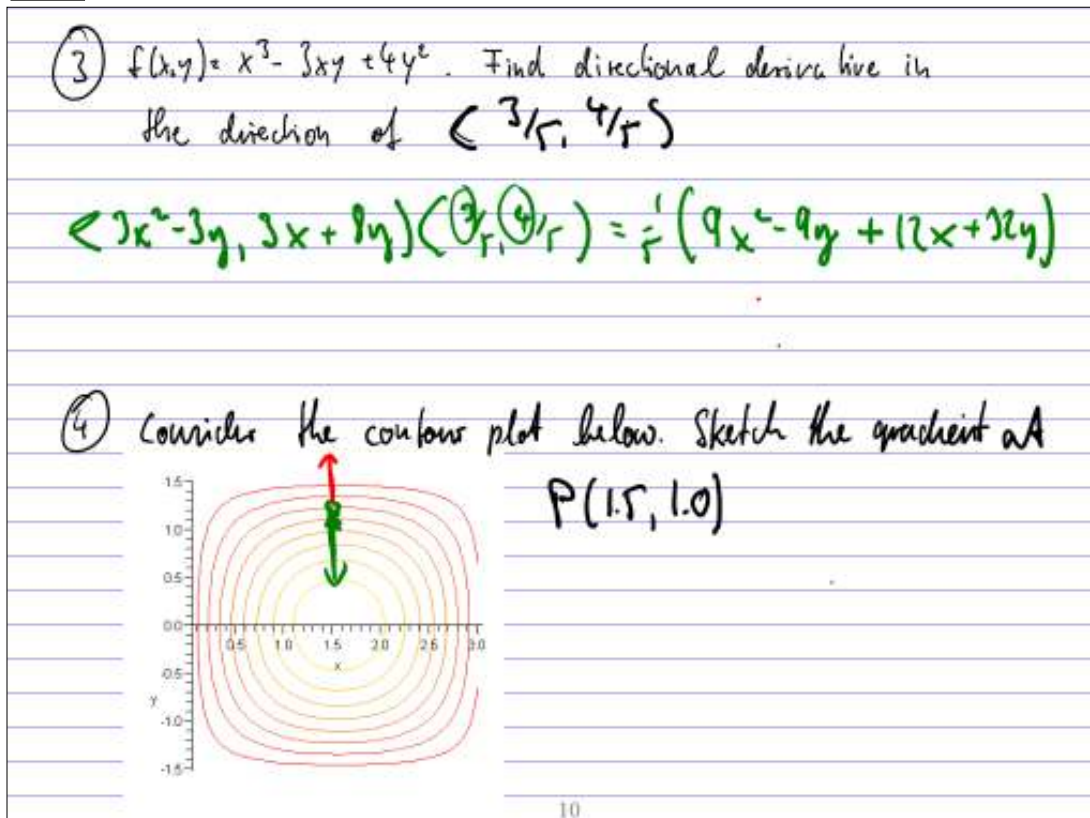 ③ f(x,y) = x³ - 3xy + 4y². Find directional derivative in
the direction of ⟨ 3/5, 4/5 ⟩
<3x²-3y, 3x + 8y⟩⟨3/5, 4/5⟩ = 1/5 (9x²-9y + 12x+32y)
④ Consider the contour plot below. Sketch the gradient at
P(1.5, 1.0)
1.5
1.0
0.5
0.0
0.5 1.0 1.5 2.0 2.5 3.0
x
-0.5
y
-1.0
-1.5
10